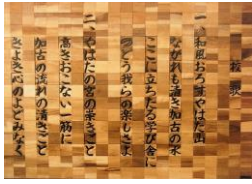 校歌
一、和風おろす やはた山
ながれも清き加古の水
ここに立ちたる学び舎に
つどう我らの楽しさよ
二、やはたの宮の榮きごと
高きおこない一筋に
加古の流れの清きごと
きよきべのよどみなく